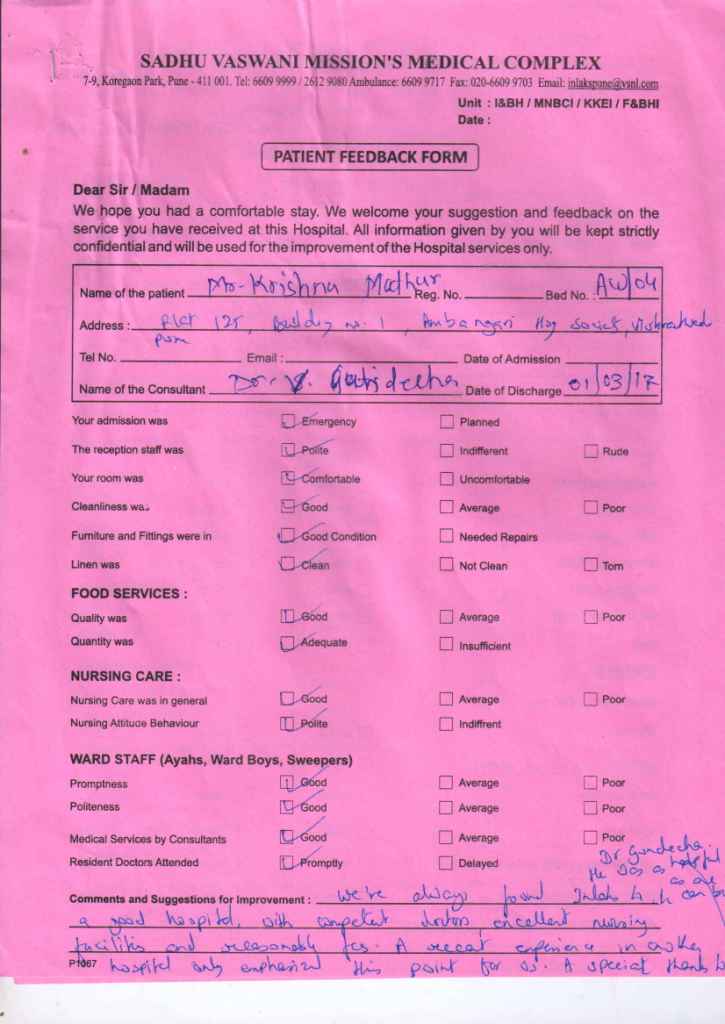 SADHU VASWANI MISSION'S MEDICAL COMPLEX
7-9, Koregaon Park, Pune - 411 001. Tel: 6609 9999 / 2612 9080 Ambulance: 6609 9717 Fax: 020-6609 9703 Email: inlakspune@vsnl.com
Unit : I&BH / MNBCI / KKEI / F&BHI
Date :
PATIENT FEEDBACK FORM
Dear Sir / Madam
We hope you had a comfortable stay. We welcome your suggestion and feedback on the
service you have received at this Hospital. All information given by you will be kept strictly
confidential and will be used for the improvement of the Hospital services only.
Name of the patient Mr. Krishna Mathur Reg. No. Bed No. : AW/04
Address : Flat 125, Building no. 1, Hsg Society,
Tel No. Email : Date of Admission
Name of the Consultant Dr. V. Date of Discharge 01/03/17
Your admission was Emergency Planned
The reception staff was Polite Indifferent Rude
Your room was Comfortable Uncomfortable
Cleanliness was Good Average Poor
Furniture and Fittings were in Good Condition Needed Repairs
Linen was Clean Not Clean Torn
FOOD SERVICES :
Quality was Good Average Poor
Quantity was Adequate Insufficient
NURSING CARE :
Nursing Care was in general Good Average Poor
Nursing Attitude Behaviour Polite Indiffrent
WARD STAFF (Ayahs, Ward Boys, Sweepers)
Promptness Good Average Poor
Politeness Good Average Poor
Medical Services by Consultants Good Average Poor
Resident Doctors Attended Promptly Delayed
Comments and Suggestions for Improvement : We've always found Inlaks to be
a good hospital, with competent doctors, excellent nursing
facilities and reasonable fees. A recent experience in another
P1067 hospital only emphasized this point for us. A special thanks to
Dr Gundecha.
He was as helpful
as one
can be